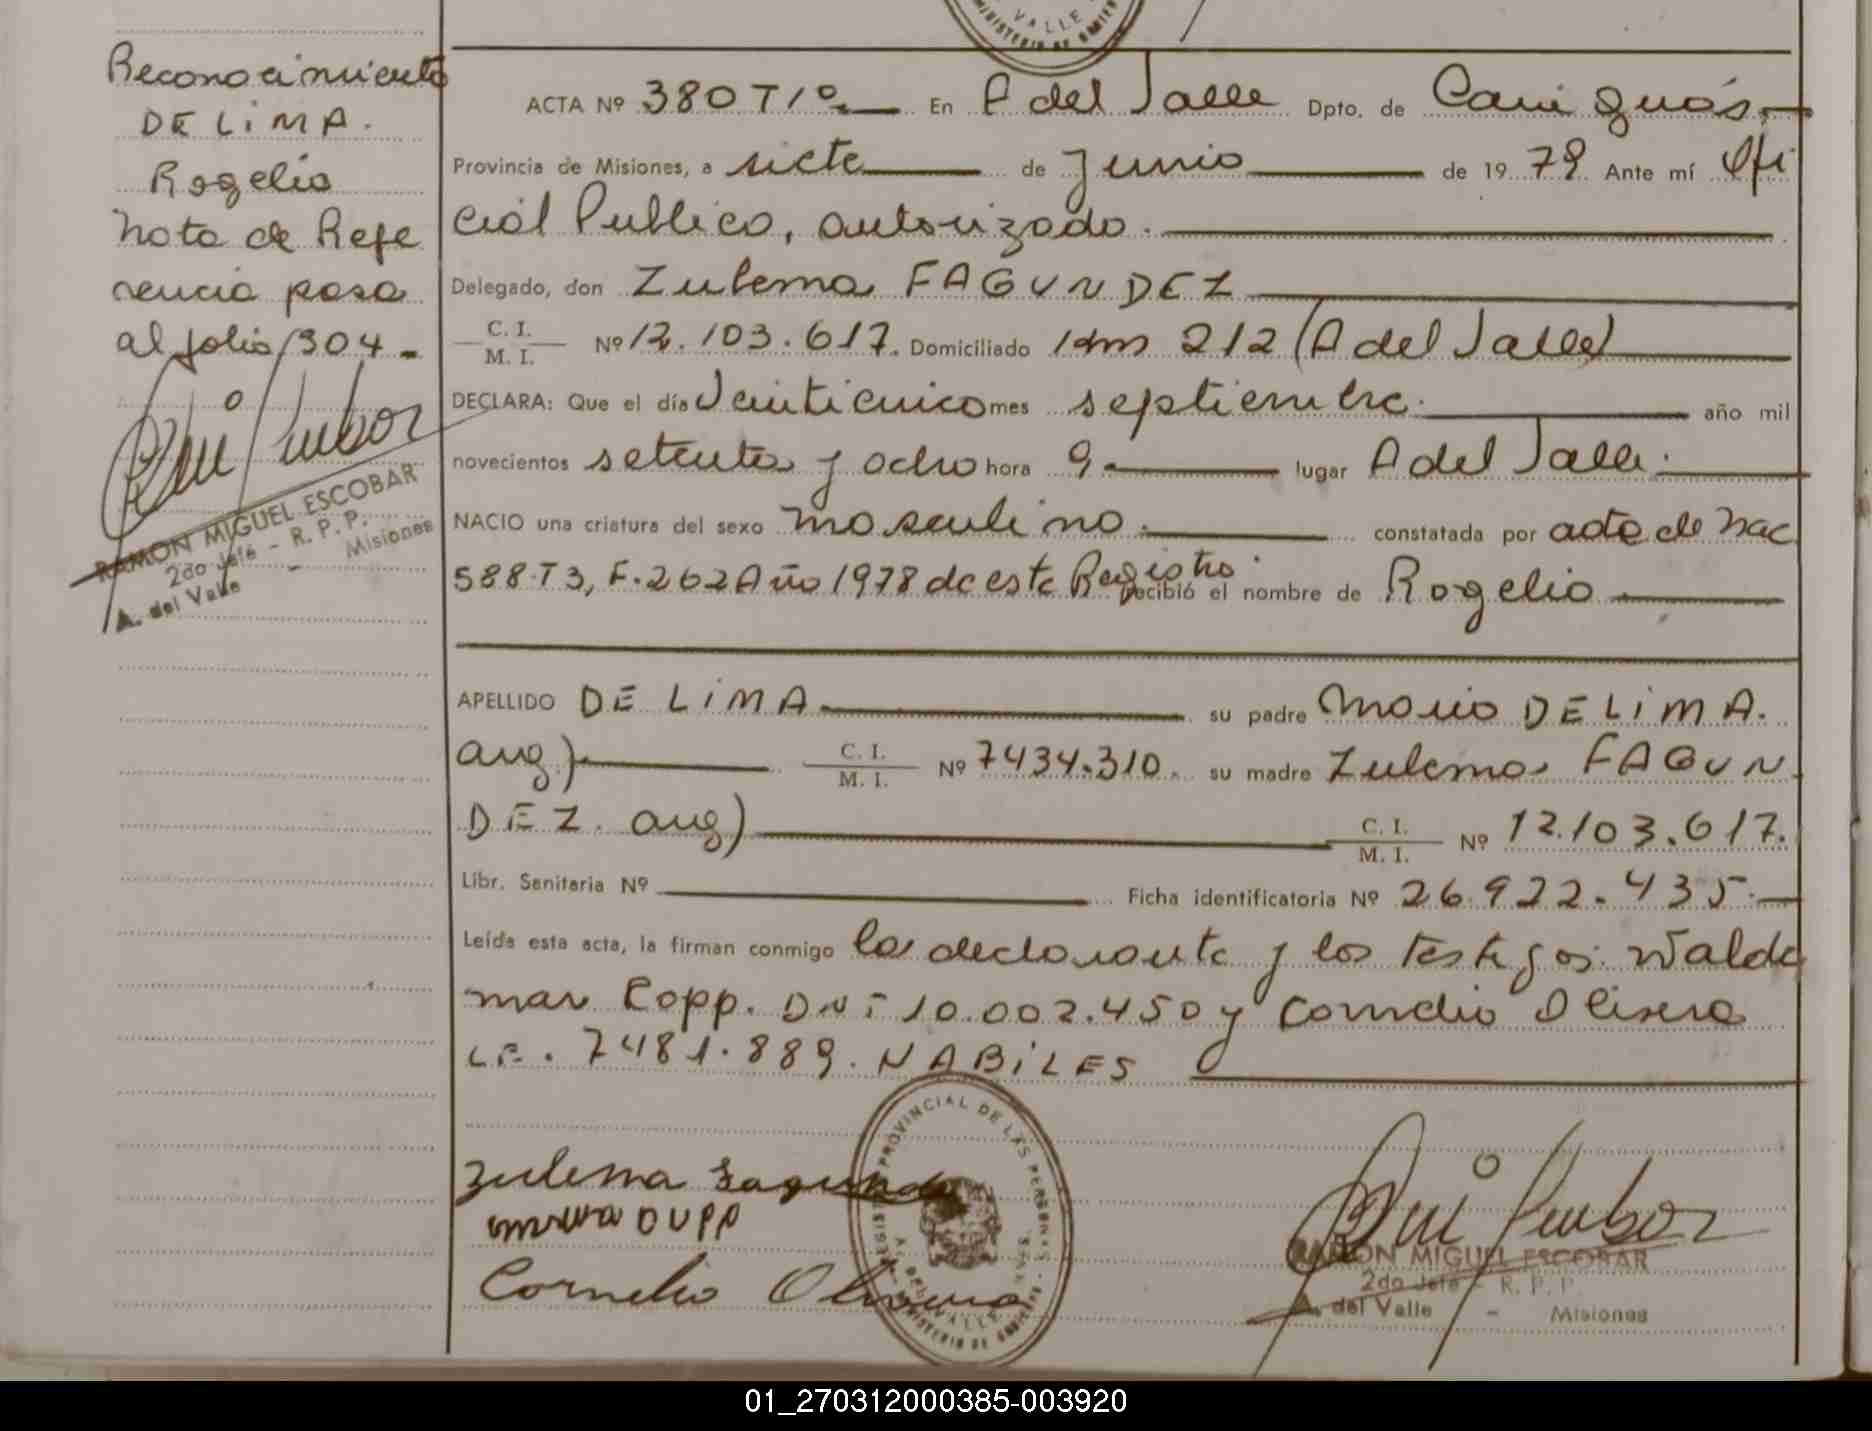 Reconocimiento
DE LiMA.
Rogelio
Nota de Refe
rencia pasa
al folio 304-
RAMON MIGUEL ESCOBAR
2do Jefe - R. P. P.
A. del Valle - Misiones
VALLE
MINISTERIO DE GOBIERNO
ACTA Nº 380 T/1º En A del Valle Dpto. de Cainguás,
Provincia de Misiones, a siete de Junio de 1979 Ante mí Ofi
cial Publico, autorizado.
Delegado, don Zulema FAGUNDEZ
C. I.
M. I. Nº 12.103.617. Domiciliado Km 212 (A del Valle)
DECLARA: Que el día Veinticinco mes septiembre. año mil
novecientos setenta y ocho hora 9 lugar A del Valle.
NACIO una criatura del sexo masculino. constatada por acta de Nac
588.T3, F.262 Año 1978 de este Registro. recibió el nombre de Rogelio
APELLIDO DE LiMA su padre Mario DE LiMA.
arg) C. I.
M. I. Nº 7434.310. su madre Zulema FAGUN
DEZ. arg) C. I.
M. I. Nº 12.103.617.
Libr. Sanitaria Nº Ficha identificatoria Nº 26.922.435.
Leída esta acta, la firman conmigo la declarante y los testigos: Walde
mar Copp. DNi 10.002.450 y Cornelio Olivera
LE. 7481.889. HABiLES
REGISTRO PROVINCIAL DE LAS PERSONAS
A. DEL VALLE
MINISTERIO DE GOBIERNO
Zulema Fagunde
Cornelio Olivera
RAMON MIGUEL ESCOBAR
2do Jefe - R. P. P.
A. del Valle - Misiones
01_270312000385-003920